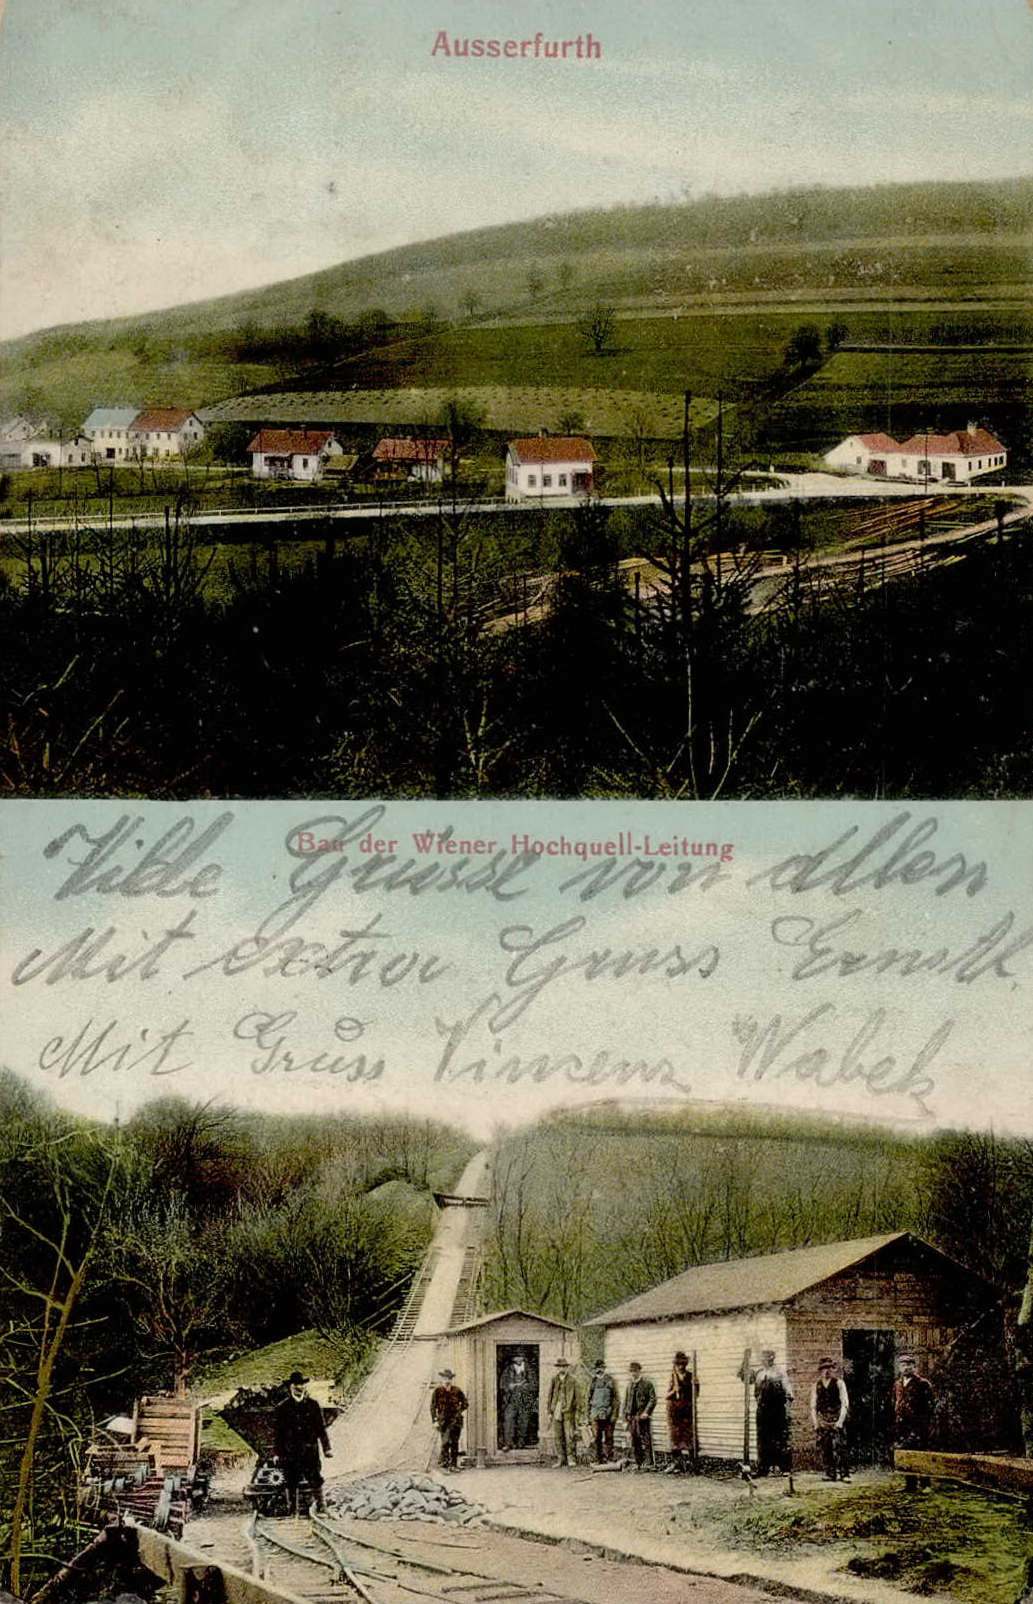 Ausserfurth
Bau der Wiener Hochquell-Leitung
Viele Grüsse von allen
Mit extra Gruss Ernstl.
Mit Gruss Vincenz Wabek